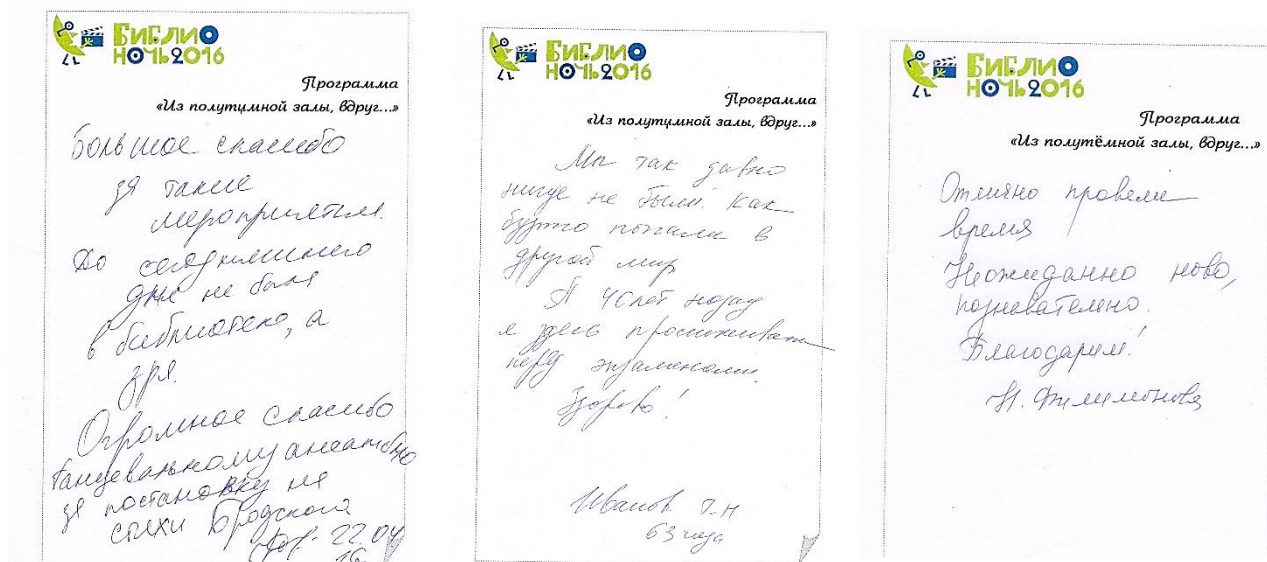 БИБЛИО
НОЧЬ2016
Программа
«Из полутцмной залы, вдруг...»
Большое спасибо
за такие
мероприятия.
До сегодняшнего
дня не была
в библиотеке, а
зря.
Огромное спасибо
танцевальному ансамблю
за постановку на
стихи Бродского
22.04
16
БИБЛИО
НОЧЬ2016
Программа
«Из полутцмной залы, вдруг...»
Мы так давно
нигде не были. Как
будто попали в
другой мир
А 40 лет назад
я здесь просиживал
перед экзаменами.
Здорово!
Иванов
63 года
БИБЛИО
НОЧЬ2016
Программа
«Из полутёмной залы, вдруг...»
Отлично провели
время
Неожиданно ново,
познавательно.
Благодарим!
Н. Филимонова